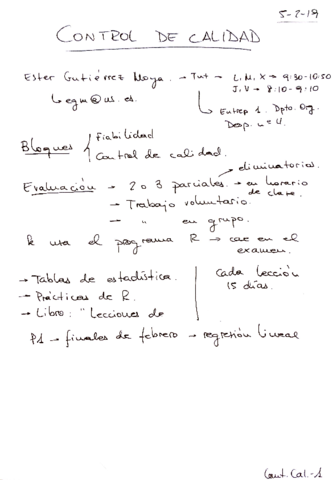 5-2-19
CONTROL DE CALIDAD
Ester Gutiérrez Moya. → Tut → L.M.X → 9:30-10:50
J.V → 8:10-9:10
↳ egm@us.es.
↳ Entrep 1. Dpto. Org.
Desp.
Bloques { Fiabilidad
Control de calidad.
Evaluación → 2 o 3 parciales. → eliminatorios.
→ en horario de clase.
→ Trabajo voluntario.
→ " en grupo.
Se usa el programa R → cae en el
examen.
→ Tablas de estadística.
→ Prácticas de R.
→ Libro: "Lecciones de
Cada lección
15 días.
P1 → finales de febrero → regresión lineal
Cont.Cal-1